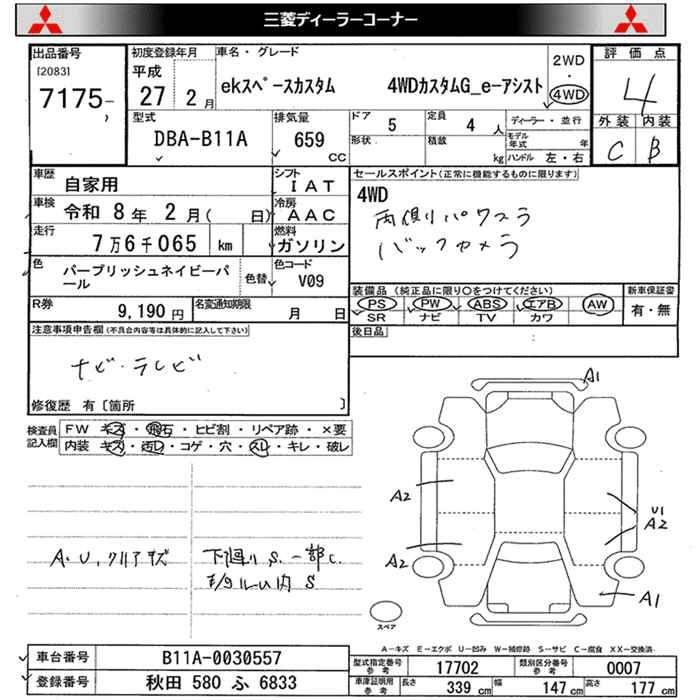 三菱ディーラーコーナー
出品番号 初度登録年月 車名・グレード
[2083] 平成 2WD ・ 4WD
7175- 27年 2月 ekスペースカスタム 4WDカスタムG_e-アシスト
評価点
4
型式 排気量 ドア 5 定員 4人 ディーラー・並行 外装 内装
DBA-B11A 659 CC 形状 積載 kg モデル年式 年 C B
ハンドル 左・右
車歴 自家用 シフト IAT セールスポイント(正常に機能するものに限ります)
車検 令和 8年 2月( 日) 冷房 AAC 4WD
走行 7万6千065 km 燃料 ガソリン 両側パワスラ
バックカメラ
色 パープリッシュネイビーパール 色替 色コード V09
装備品(純正品に限り○をつけてください) 新車保証書
R券 9,190円 名変通知期限 月 日 PS PW ABS エアB AW 有・無
SR ナビ TV カワ
注意事項申告欄(不具合内容等は具体的に記入して下さい) 後日品
ナビ・テレビ
修復歴 有〔箇所 〕
検査員記入欄 FW キズ・飛石・ヒビ割・リペア跡・×要
内装 キズ・汚レ・コゲ・穴・スレ・キレ・破レ
A1
A2
U1
A2
A2
A1
A・U、クリアキズ 下廻りS、一部C、
ホイール内S
スペア
A-キズ E-エクボ U-凹み W-補修跡 S-サビ C-腐食 XX-交換済
車台番号 B11A-0030557 型式指定番号 参考 17702 類別区分番号 参考 0007
登録番号 秋田 580 ふ 6833 車庫証明用 参考 長さ 339cm 幅 147cm 高さ 177cm